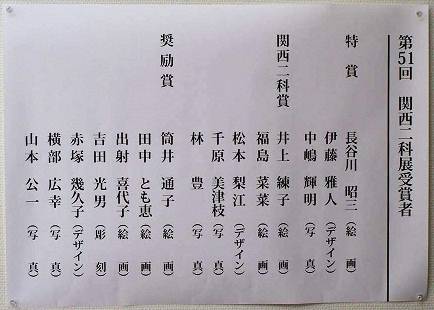 第51回 関西二科展受賞者
特賞
長谷川 昭三（絵 画）
伊藤 雅人（デザイン）
中嶋 輝明（写 真）
関西二科賞
井上 練子（絵 画）
福島 菜菜（絵 画）
松本 梨江（デザイン）
千原 美津枝（写 真）
林 豊（写 真）
奨励賞
筒井 通子（絵 画）
田中 とも恵（絵 画）
出射 喜代子（絵 画）
吉田 光男（彫 刻）
赤塚 幾久子（デザイン）
横部 広幸（写 真）
山本 公一（写 真）